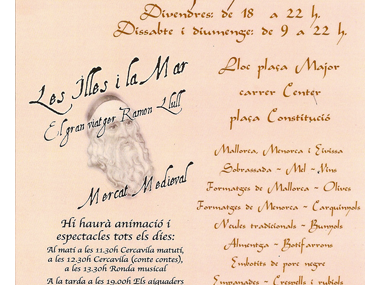 Divendres: de 18 a 22 h.
Dissabte i diumenge: de 9 a 22 h.
Les Illes i la Mar
El gran viatger Ramon Llull
Mercat Medieval
Hi haurà animació i
espectacles tots els dies:
Al matí a les 11.30h Cercavila matutí,
a les 12.30h Cercavila (conte contes),
a les 13.30h Ronda musical
A la tarda a les 19.00h Els aiguaders
Lloc plaça Major
carrer Center
plaça Constitució
Mallorca, Menorca i Eivissa
Sobrassada - Mel - Vins
Formatges de Mallorca - Olives
Formatges de Menorca - Carquinyols
Neules tradicionals - Bunyols
Almentga - Botifarrons
Embotits de porc negre
Empanades - Crespells i rubiols